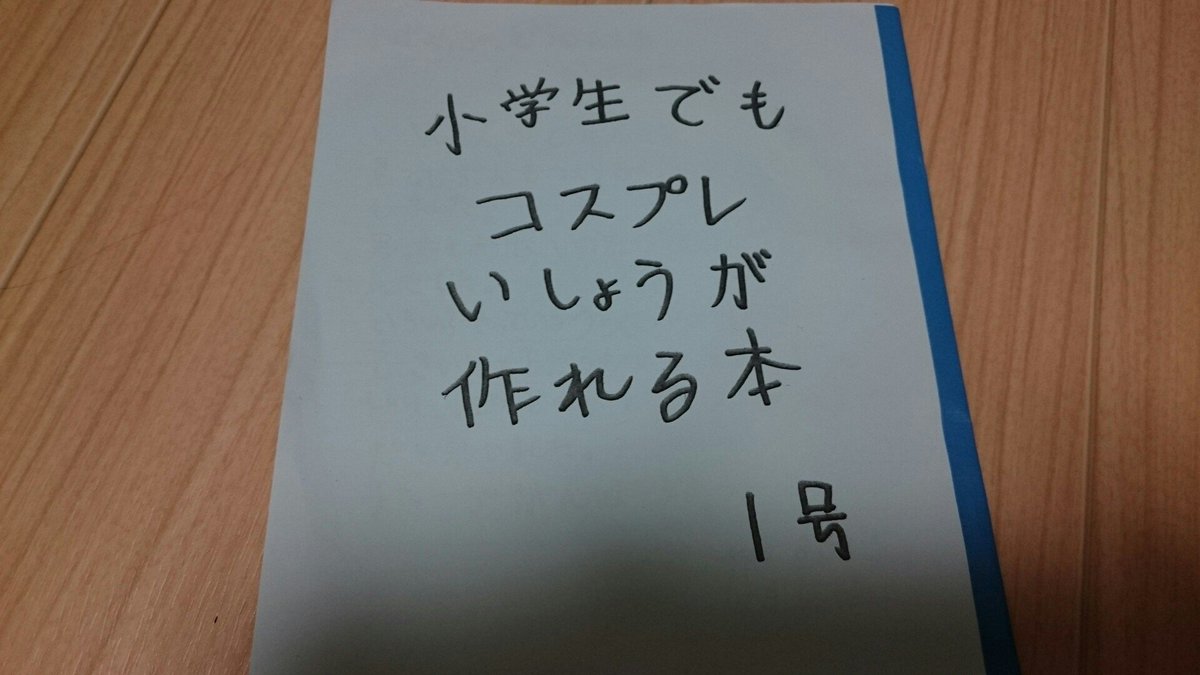 小学生でも
コスプレ
いしょうが
作れる本
1号